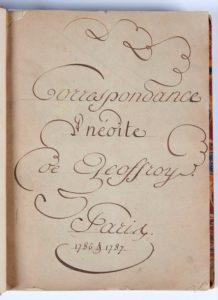 Correspondance
Inédite
de Geoffroy.
Paris,
1786 & 1787.